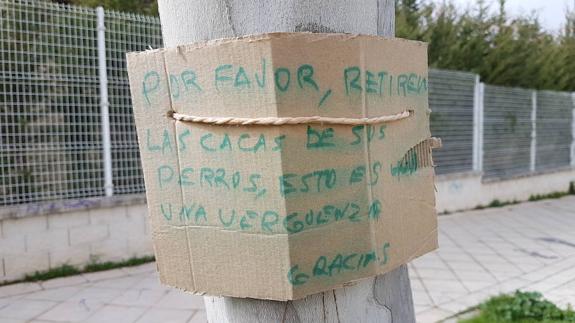 POR FAVOR, RETIREN
LAS CACAS DE SUS
PERROS, ESTO ES
UNA VERGUENZA
GRACIAS